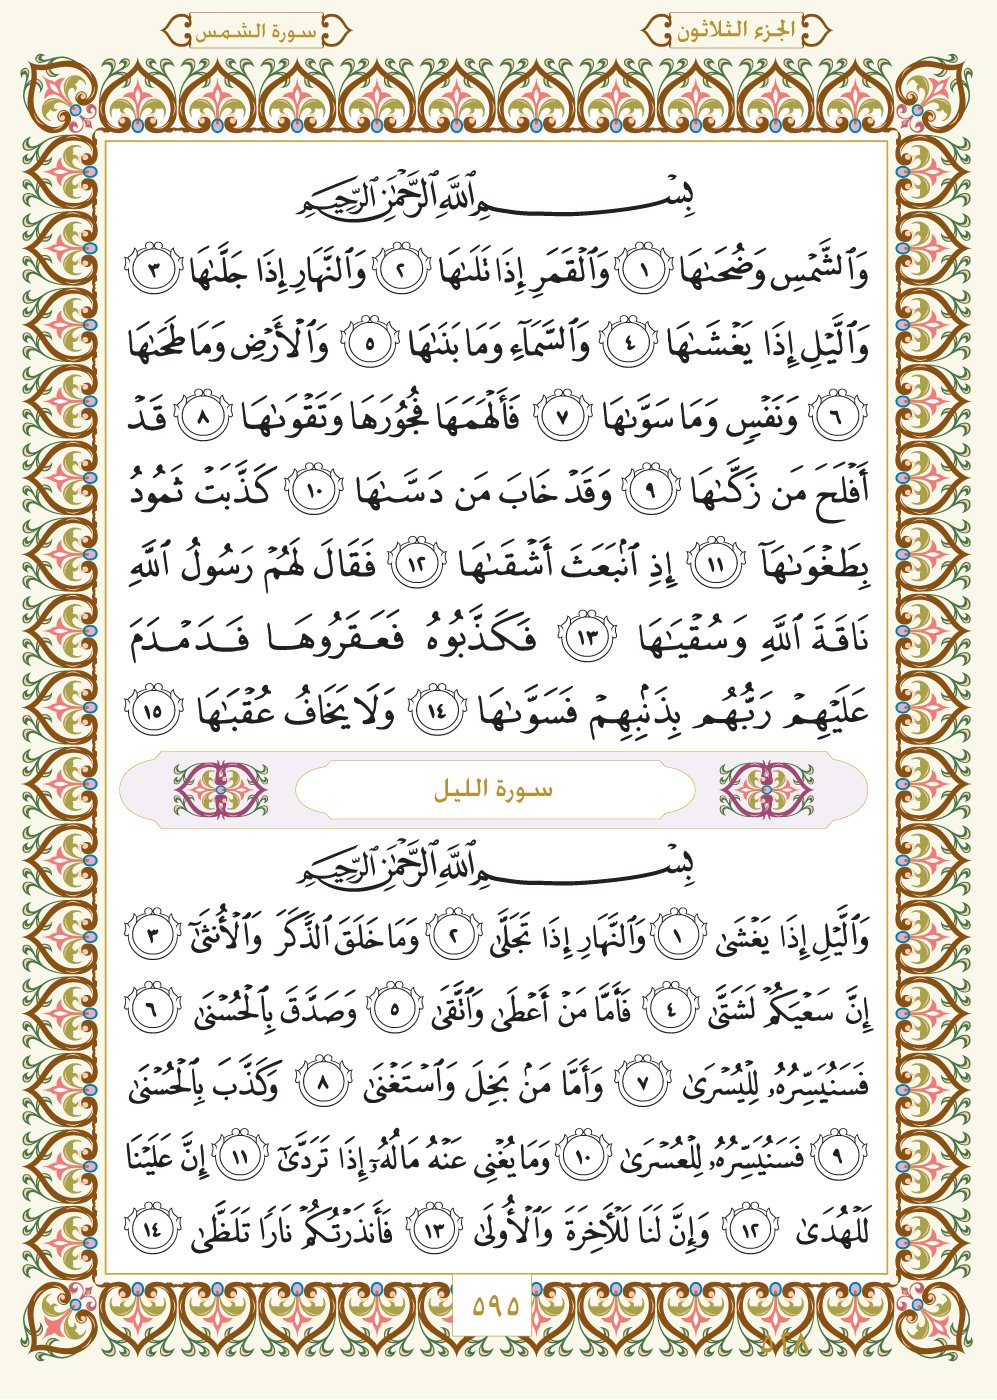 الجزء الثلاثون
سورة الشمس
بِسْمِ ٱللَّهِ ٱلرَّحْمَٰنِ ٱلرَّحِيمِ
وَٱلشَّمْسِ وَضُحَىٰهَا ١ وَٱلْقَمَرِ إِذَا تَلَىٰهَا ٢ وَٱلنَّهَارِ إِذَا جَلَّىٰهَا ٣
وَٱلَّيْلِ إِذَا يَغْشَىٰهَا ٤ وَٱلسَّمَآءِ وَمَا بَنَىٰهَا ٥ وَٱلْأَرْضِ وَمَا طَحَىٰهَا
٦ وَنَفْسٍ وَمَا سَوَّىٰهَا ٧ فَأَلْهَمَهَا فُجُورَهَا وَتَقْوَىٰهَا ٨ قَدْ
أَفْلَحَ مَن زَكَّىٰهَا ٩ وَقَدْ خَابَ مَن دَسَّىٰهَا ١٠ كَذَّبَتْ ثَمُودُ
بِطَغْوَىٰهَآ ١١ إِذِ ٱنۢبَعَثَ أَشْقَىٰهَا ١٢ فَقَالَ لَهُمْ رَسُولُ ٱللَّهِ
نَاقَةَ ٱللَّهِ وَسُقْيَىٰهَا ١٣ فَكَذَّبُوهُ فَعَقَرُوهَا فَدَمْدَمَ
عَلَيْهِمْ رَبُّهُم بِذَنۢبِهِمْ فَسَوَّىٰهَا ١٤ وَلَا يَخَافُ عُقْبَىٰهَا ١٥
سورة الليل
بِسْمِ ٱللَّهِ ٱلرَّحْمَٰنِ ٱلرَّحِيمِ
وَٱلَّيْلِ إِذَا يَغْشَىٰ ١ وَٱلنَّهَارِ إِذَا تَجَلَّىٰ ٢ وَمَا خَلَقَ ٱلذَّكَرَ وَٱلْأُنثَىٰٓ ٣
إِنَّ سَعْيَكُمْ لَشَتَّىٰ ٤ فَأَمَّا مَنْ أَعْطَىٰ وَٱتَّقَىٰ ٥ وَصَدَّقَ بِٱلْحُسْنَىٰ ٦
فَسَنُيَسِّرُهُۥ لِلْيُسْرَىٰ ٧ وَأَمَّا مَنۢ بَخِلَ وَٱسْتَغْنَىٰ ٨ وَكَذَّبَ بِٱلْحُسْنَىٰ
٩ فَسَنُيَسِّرُهُۥ لِلْعُسْرَىٰ ١٠ وَمَا يُغْنِى عَنْهُ مَالُهُۥٓ إِذَا تَرَدَّىٰٓ ١١ إِنَّ عَلَيْنَا
لَلْهُدَىٰ ١٢ وَإِنَّ لَنَا لَلْءَاخِرَةَ وَٱلْأُولَىٰ ١٣ فَأَنذَرْتُكُمْ نَارًا تَلَظَّىٰ ١٤
٥٩٥